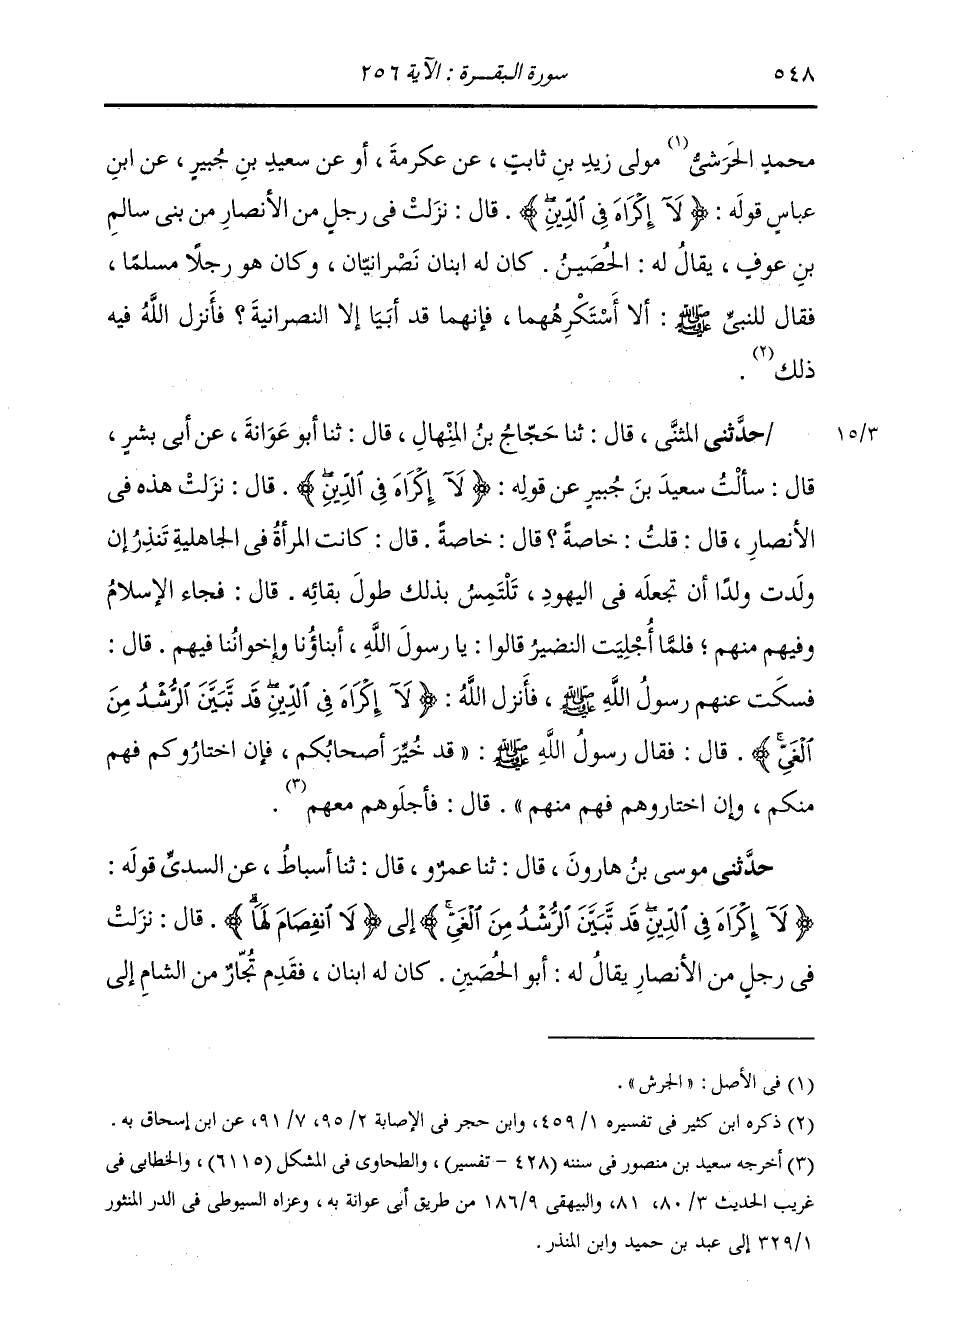 ٥٤٨ سورة البقـرة : الآية ٢٥٦
محمدٍ الحَرَشىُّ(١) مولى زيدِ بنِ ثابتٍ ، عن عكرمةَ ، أو عن سعيدِ بنِ جُبيرٍ ، عن ابنِ
عباسٍ قولَه : ﴿ لَآ إِكْرَاهَ فِى ٱلدِّينِۖ ﴾ . قال : نزَلتْ فى رجلٍ من الأنصارِ من بنى سالمِ
بنِ عوفٍ ، يقالُ له : الحُصَينُ . كان له ابنان نَصْرانيّان ، وكان هو رجلًا مسلمًا ،
فقال للنبىِّ ﷺ : ألا أَسْتَكْرِهُهما ، فإنهما قد أبَيَا إلا النصرانيةَ ؟ فأَنزل اللَّهُ فيه
ذلك(٢) .
١٥/٣ /حدَّثنى المثنَّى ، قال : ثنا حَجّاجُ بنُ المِنْهالِ ، قال : ثنا أبو عَوَانةَ ، عن أبى بشرٍ ،
قال : سألْتُ سعيدَ بنَ جُبيرٍ عن قولِه : ﴿ لَآ إِكْرَاهَ فِى ٱلدِّينِۖ ﴾ . قال : نزَلتْ هذه فى
الأنصارِ ، قال : قلتُ : خاصةً ؟ قال : خاصةً . قال : كانت المرأةُ فى الجاهليةِ تَنذِرُ إن
ولَدت ولدًا أن تجعلَه فى اليهودِ ، تَلْتَمِسُ بذلك طولَ بقائِه . قال : فجاء الإسلامُ
وفيهم منهم ؛ فلمَّا أُجْلِيَت النضيرُ قالوا : يا رسولَ اللَّهِ ، أبناؤُنا وإخوانُنا فيهم . قال :
فسكَت عنهم رسولُ اللَّهِ ﷺ ، فأَنزل اللَّهُ : ﴿ لَآ إِكْرَاهَ فِى ٱلدِّينِۖ قَد تَّبَيَّنَ ٱلرُّشْدُ مِنَ
ٱلْغَىِّۚ ﴾ . قال : فقال رسولُ اللَّهِ ﷺ : « قد خُيِّرَ أصحابُكم ، فإن اختارُوكم فهم
منكم ، وإن اختاروهم فهم منهم » . قال : فأجلَوهم معهم(٣) .
حدَّثنى موسى بنُ هارونَ ، قال : ثنا عمرٌو ، قال : ثنا أسباطُ ، عن السدىِّ قولَه :
﴿ لَآ إِكْرَاهَ فِى ٱلدِّينِۖ قَد تَّبَيَّنَ ٱلرُّشْدُ مِنَ ٱلْغَىِّۚ ﴾ إلى ﴿ لَا ٱنفِصَامَ لَهَاۗ ﴾ . قال : نزَلتْ
فى رجلٍ من الأنصارِ يقالُ له : أبو الحُصَينِ . كان له ابنان ، فقَدِم تُجّارٌ من الشامِ إلى
(١) فى الأصل : « الجرش » .
(٢) ذكره ابن كثير فى تفسيره ١/ ٤٥٩، وابن حجر فى الإصابة ٢/ ٩٥، ٧/ ٩١، عن ابن إسحاق به .
(٣) أخرجه سعيد بن منصور فى سننه (٤٢٨ - تفسير) ، والطحاوى فى المشكل (٦١١٥) ، والخطابى فى
غريب الحديث ٣/ ٨٠، ٨١، والبيهقى ١٨٦/٩ من طريق أبى عوانة به ، وعزاه السيوطى فى الدر المنثور
٣٢٩/١ إلى عبد بن حميد وابن المنذر .